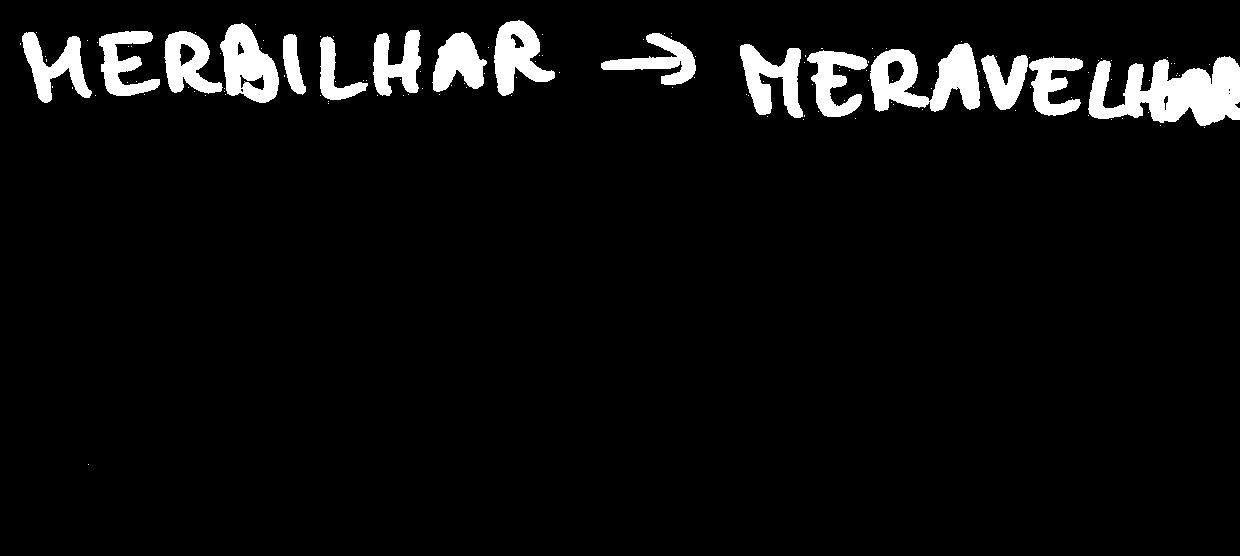 MERBILHAR → MERAVELHAR